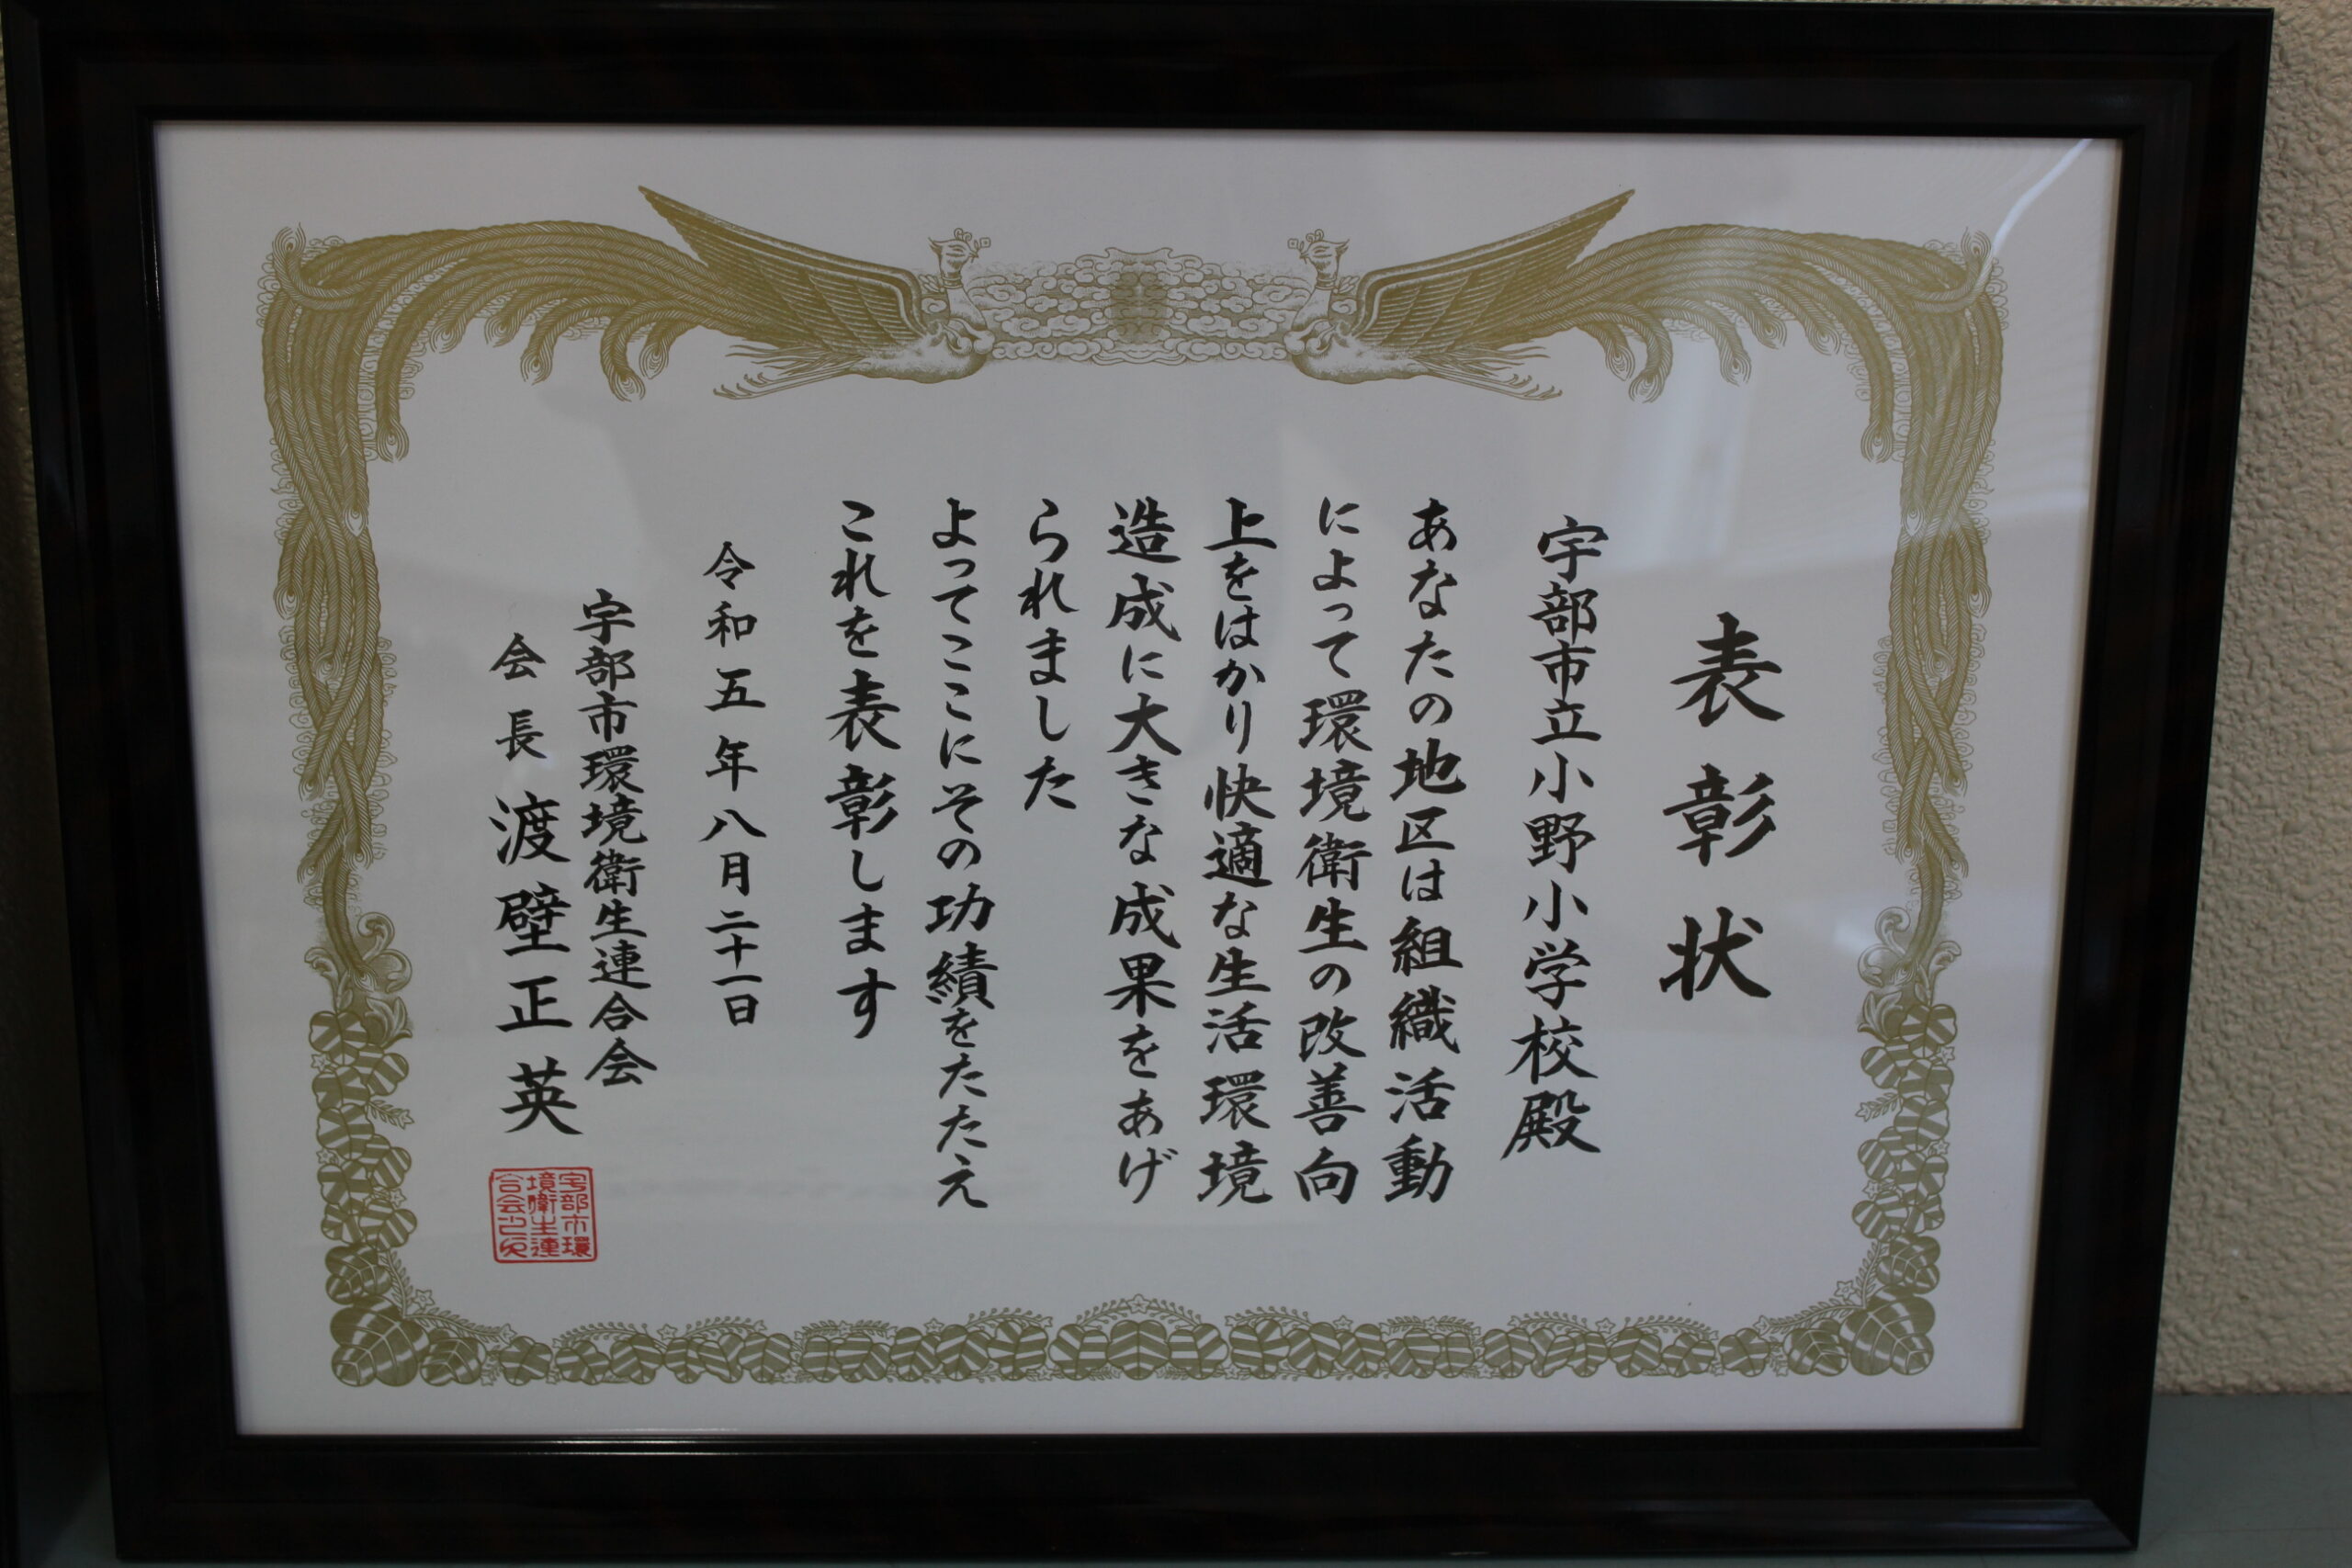 表彰状
宇部市立小野小学校殿
あなたの地区は組織活動
によって環境衛生の改善向
上をはかり快適な生活環境
造成に大きな成果をあげ
られました
よってここにその功績をたたえ
これを表彰します
令和五年八月二十一日
宇部市環境衛生連合会
会長 渡壁正英
宇部市環
境衛生連
合会之印